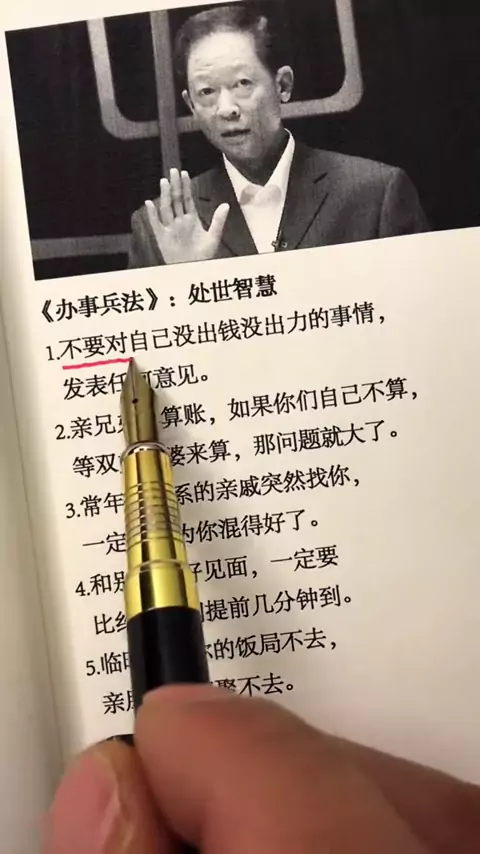 《办事兵法》：处世智慧
1.不要对自己没出钱没出力的事情，
发表任何意见。
2.亲兄 算账，如果你们自己不算，
等双 婆来算，那问题就大了。
3.常年 系的亲戚突然找你，
一定 为你混得好了。
4.和别 好见面，一定要
比约 间提前几分钟到。
5.临时 你的饭局不去，
亲 聚不去。